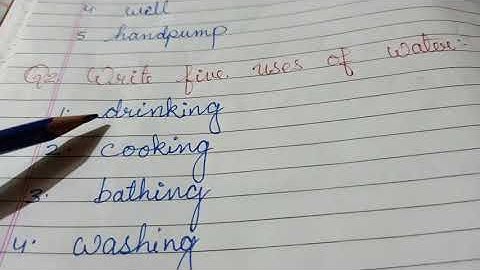 4 well
5 handpump
Q2. Write five uses of water:-
1. drinking
2. cooking
3. bathing
4. washing